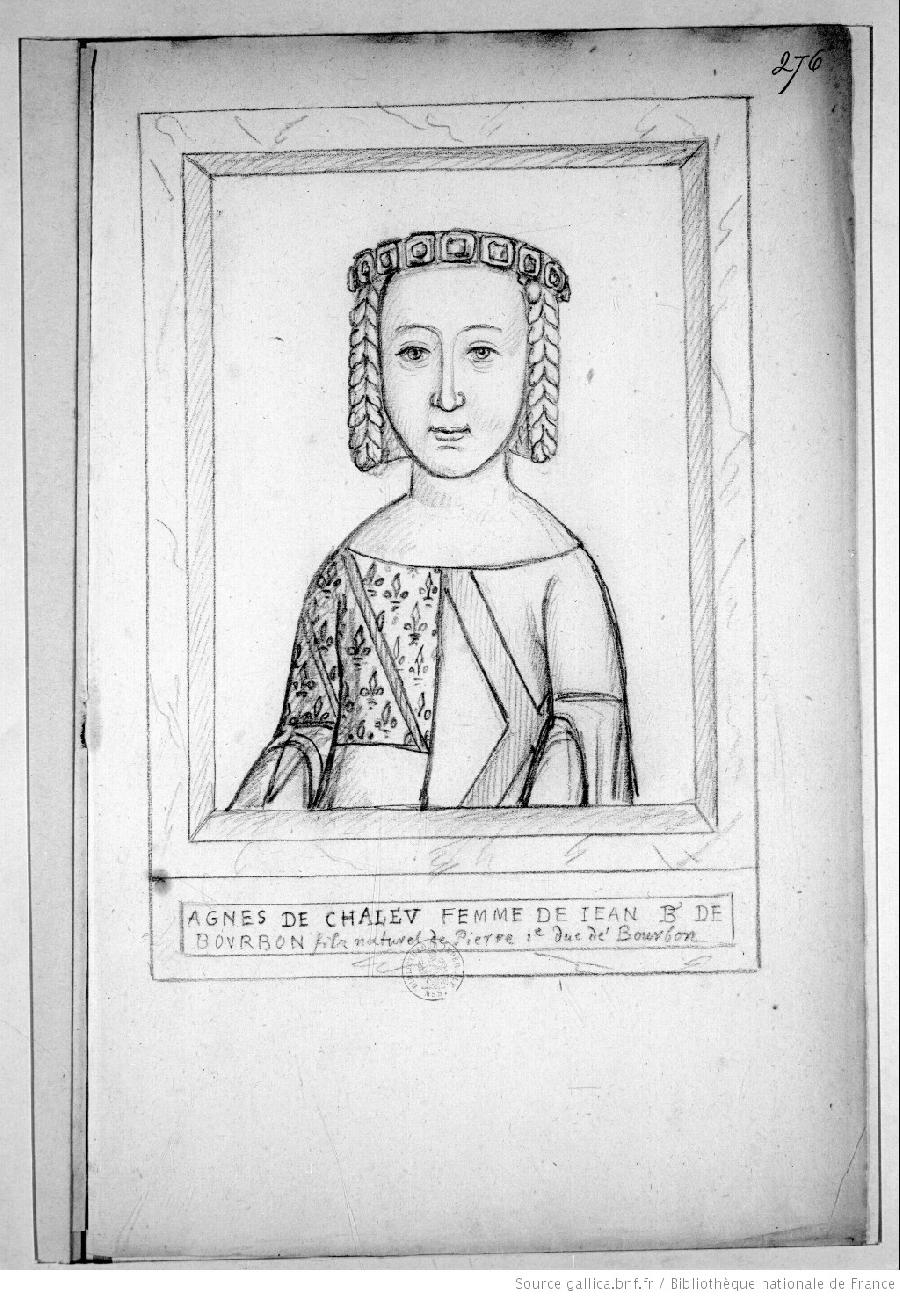 276
AGNES DE CHALEV FEMME DE IEAN B DE
BOVRBON filz naturel de Pierre 1e duc de Bourbon
Source gallica.bnf.fr / Bibliothèque nationale de France